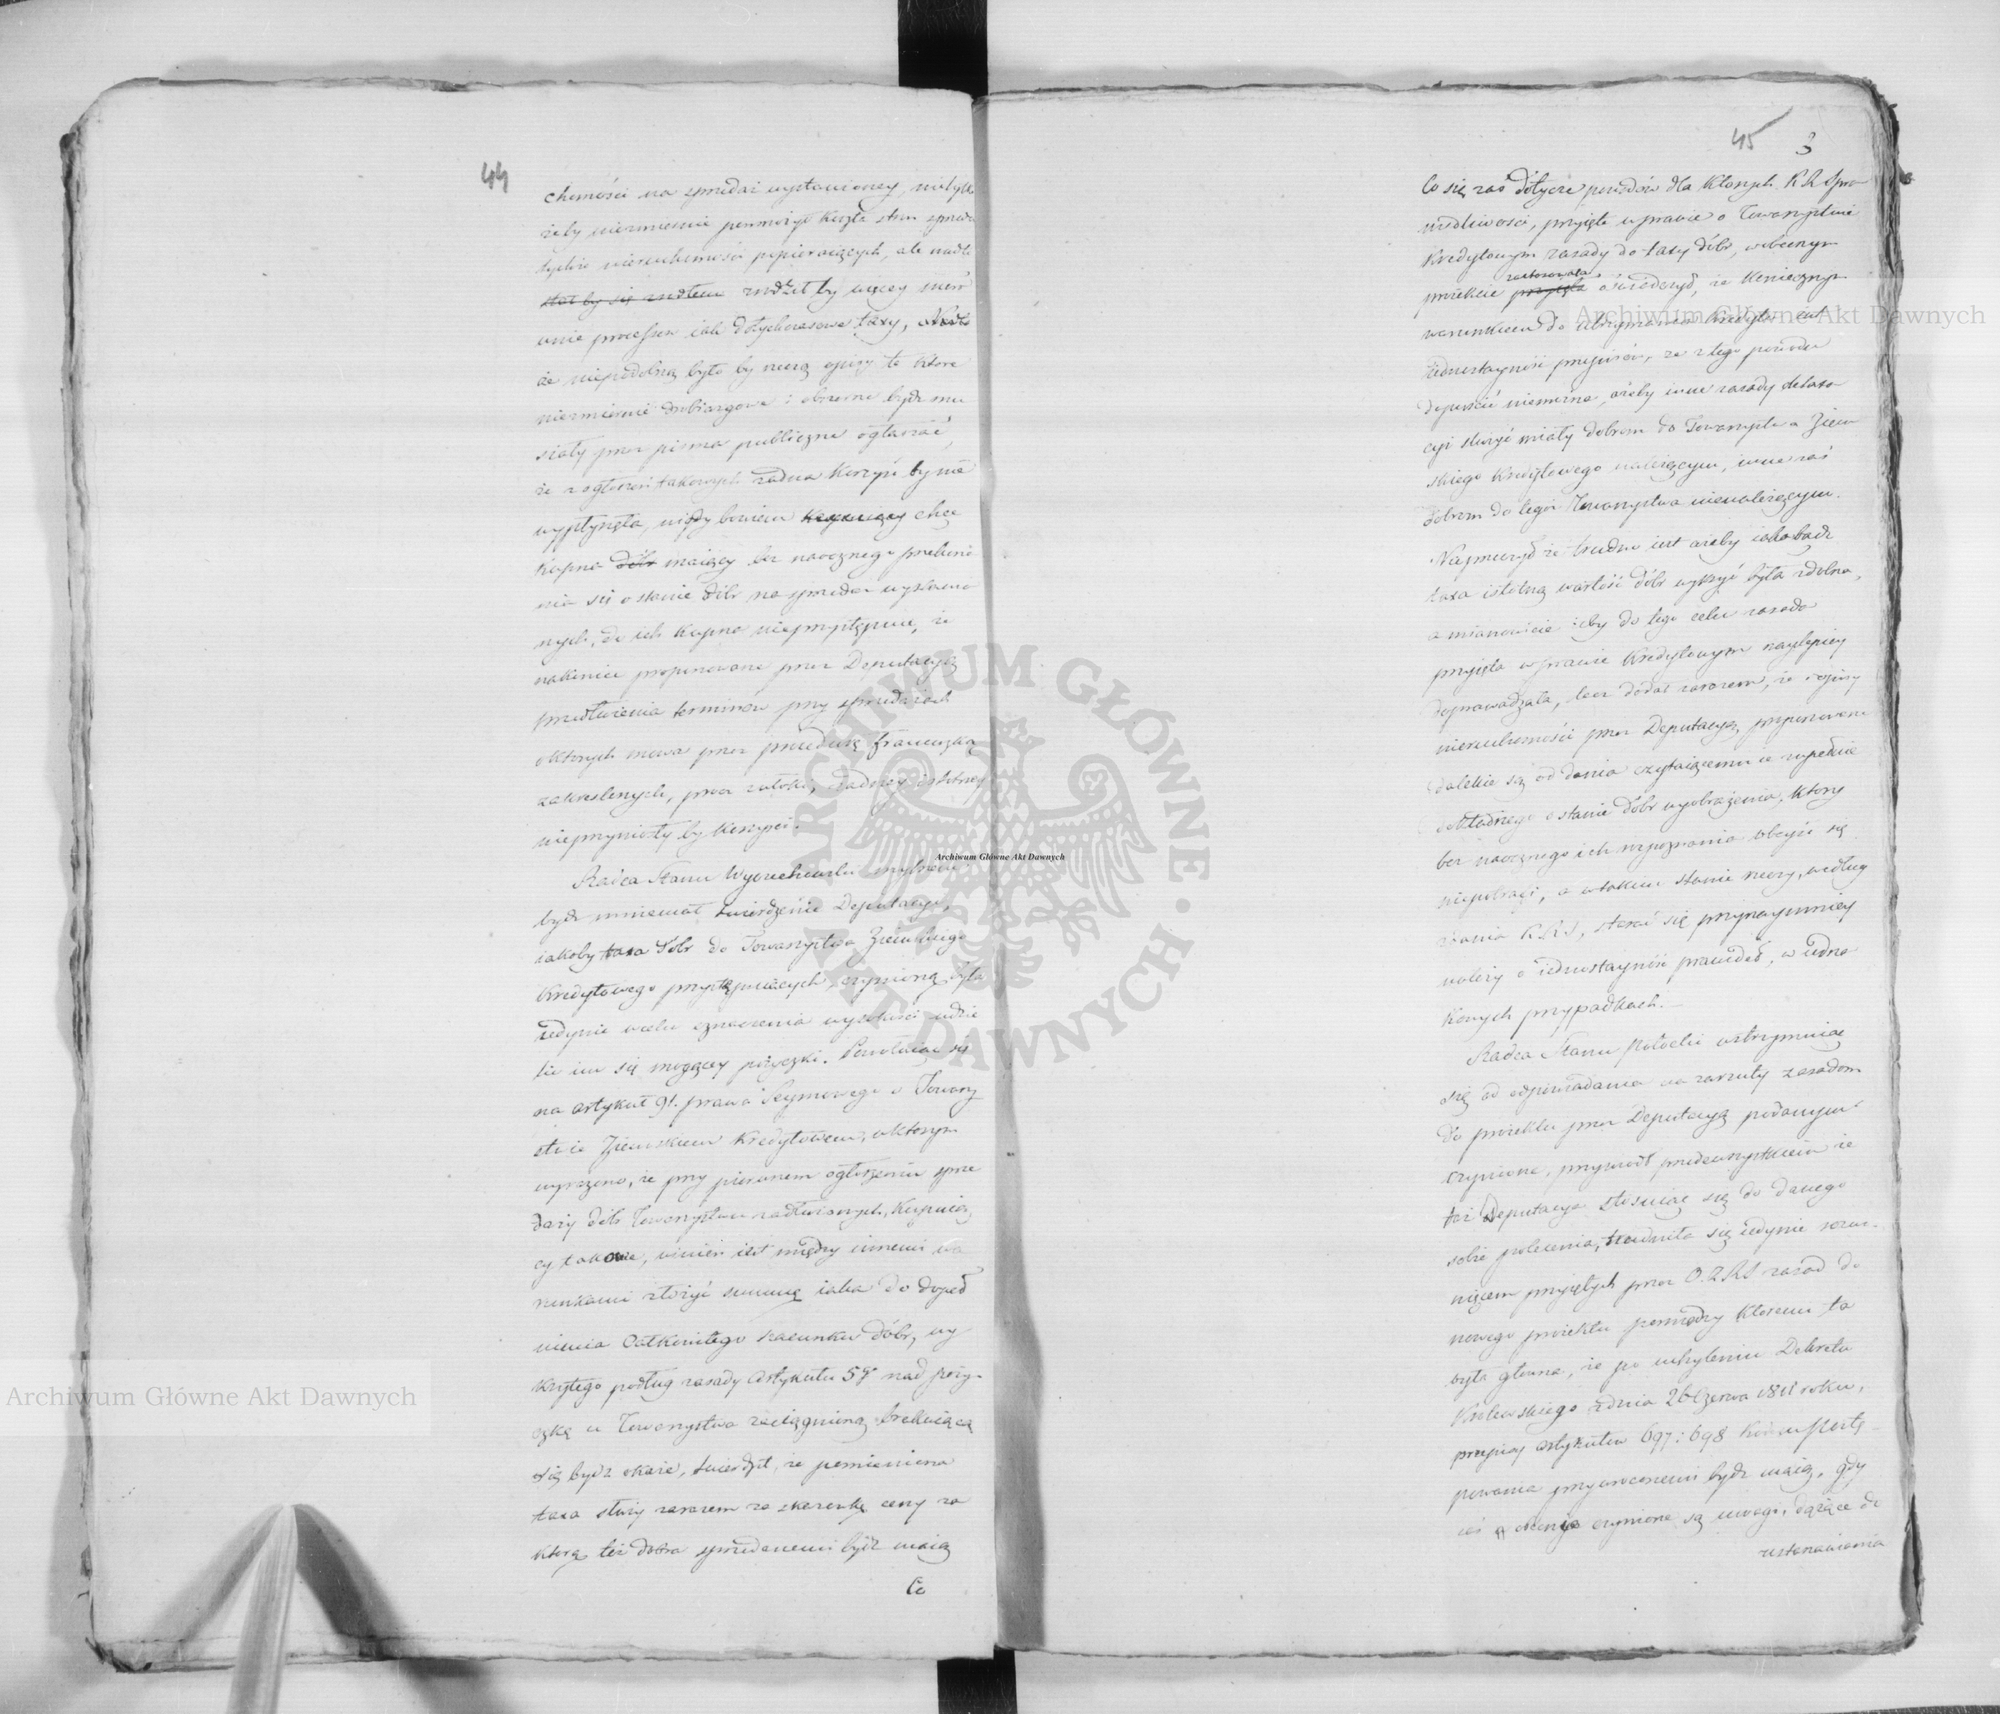 44
chomości na sprzedaż wystawioney, nietylko
żeby niezmiernie pomnożyć koszta stron sprzeda
tychże nieruchomości popieraiących, ale nadto
stał by się źrzódłem zrodził by więcey nierów
unie processu iak dotychczasowe taxy,
że niepodobną było by rzeczą opisy te które
niezmiernie drobiazgowe i obszerne bydź mu
siały przez pisma publiczne ogłaszać,
że z ogłoszeń takowych żadna korzyść by nie
wypłynęła, nigdy bowiem kupuiący chęć
kupna dóbr maiący bez naocznego przekona
nia się o stanie dóbr na sprzedaż wystawio
nych, do ich kupna nieprzystępuie, że
nakoniec proponowane przez Deputacyą
przedłużenia terminów przy sprzedażach
o których mowa przez procedurę francuzką
zakreślonych, przez zwłoki, żadney istotney
nieprzyniosły by korzyści.
Radca Stanu Wyczechowski mylnem
bydź mniemał twierdzenie Deputacyi,
iakoby taxa Dóbr do Towarzystwa Ziemskiego
Kredytowego przystępuiących, czynioną była
iedynie w celu oznaczenia wysokości udzie
lić im się mogącey pożyczki. Powołuiąc się
na artykuł 91. prawa Seymowego o Towarzy
stwie Ziemskiem Kredytowem, w którym
wyrażono, że przy pierwszem ogłoszeniu sprze
daży dóbr Towarzystwu zadłużonych, kupuią
cy takowe, winien iest między innemi wa
runkami złożyć summę iaka do dopeł
nienia całkowitego szacunku dóbr, wy
krytego podług zasady Artykułu 58 nad poży-
czkę u Towarzystwa zaciągnioną brakuiącą
się bydź okaże, twierdził, że pomieniona
taxa służy zarazem za skazówkę ceny za
którą też dobra sprzedanemi bydź maią
Co
45 3
Co się zaś dotycze powodów dla których K R Spra
wiedliwości, przyięte w prawie o Towarzystwie
Kredytowym zasady do taxy dóbr, w obecnym
zastosowała
proiekcie przyięła oświadczył, że koniecznym
warunkiem do utrzymania kredytu iest
iednostayność przepisów, że z tego powodu
dopuścić niemożna, ażeby inne zasady detaxa
cyi służyć miały dobrom do Towarzystwa Ziem
skiego Kredytowego należącym, inne zaś
dobrom do tegoż Towarzystwa nienależącym.
Nazmierzył że trudno iest ażeby iakabądź
taxa istotną wartość dóbr wykryć była zdolna,
a mianowicie żeby do tego celu zasada
przyięta w prawie Kredytowym naylepiey
doprowadzała, lecz dodał zarazem, że i opisy
nieruchomości przez Deputacyą proponowane
dalekie są od dania czytaiącemu ie zupełnie
dokładnego o stanie dóbr wyobrażenia, który
bez naocznego ich rozpoznania obeyść się
niepotrafi, a w takim stanie rzeczy, według
zdania K.R.S, starać się przynaymniey
należy o iednostayność prawideł, w iedna
kowych przypadkach.—
Radca Stanu Potocki wstrzymuiąc
się od odpowiadania na zarzuty zasadom
do proiektu przez Deputacyą podanym
czynione, przywiódł przedewszystkiem że
też Deputacya stosuiąc się do danego
sobie polecenia, trudniła się iedynie rozwi-
nięciem przyiętych przez O.Z.R.S zasad do
nowego proiektu pomiędzy któremi ta
była główna, że po uchyleniu Dekretu
Królewskiego z dnia 26 Czerwca 1811 roku,
przepisy artykułów 697 i 698 Kodexu Postę-
powania przywróconemi bydź maią, gdy
zaś czynione są uwagi, dążące do
ustanowienia